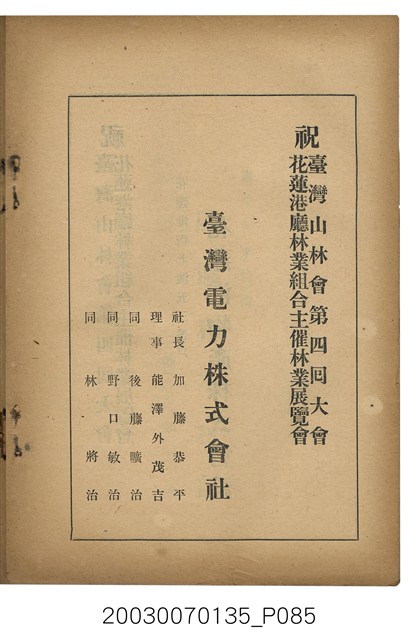 祝
臺灣山林會第四囘大會
花蓮港廳林業組合主催林業展覽會
臺灣電力株式會社
社長 加藤恭平
理事 能澤外茂吉
同 後藤曠治
同 野口敏治
同 林將治
20030070135_P085